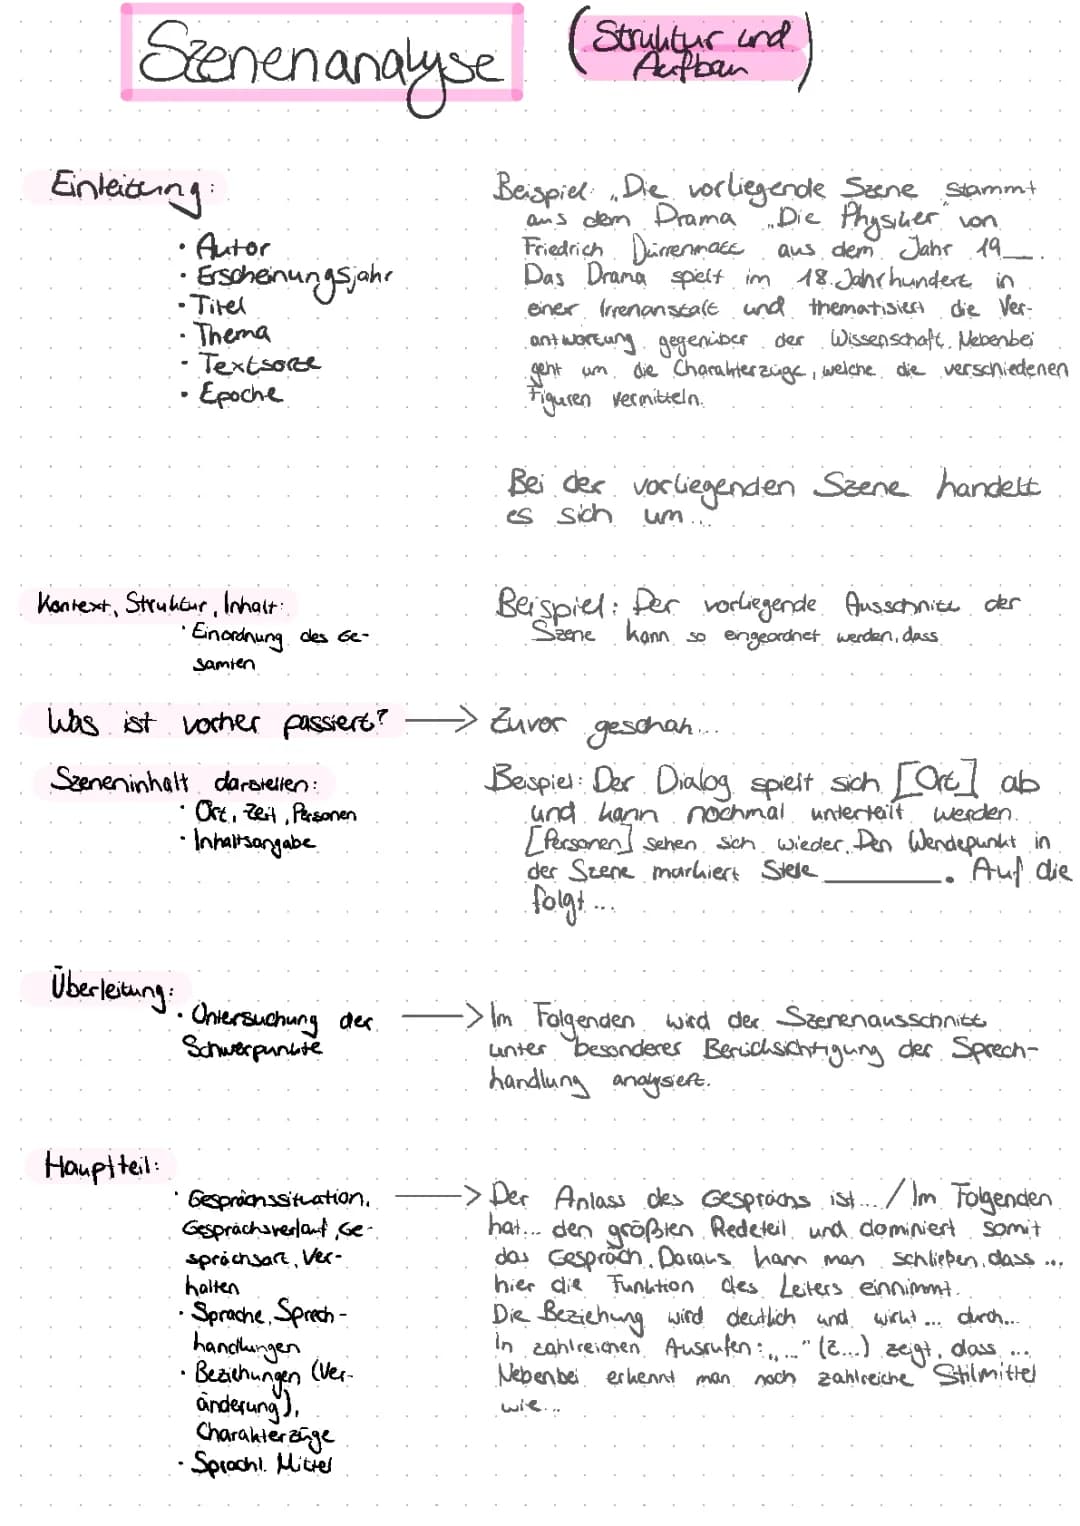 Szenenanalyse
(Struktur und
Aufbau)
Einleitung:
• Autor
• Erscheinungsjahr
• Titel
• Thema
• Textsorte
• Epoche
Beispiel: „Die vorliegende Szene stammt
aus dem Drama „Die Physiker" von
Friedrich Dürrenmatt aus dem Jahr 19__.
Das Drama spielt im 18. Jahrhundert in
einer Irrenanstalt und thematisiert die Ver-
antwortung gegenüber der Wissenschaft. Nebenbei
geht um die Charakterzüge, welche die verschiedenen
Figuren vermitteln.
Bei der vorliegenden Szene handelt
es sich um...
Kontext, Struktur, Inhalt:
• Einordnung des Ge-
samten
Beispiel: Der vorliegende Ausschnitt der
Szene kann so eingeordnet werden, dass
Was ist vorher passiert? → Zuvor geschah...
Szeneninhalt darstellen:
• Ort, Zeit, Personen
• Inhaltsangabe
Beispiel: Der Dialog spielt sich [Ort] ab
und kann nochmal unterteilt werden.
[Personen] sehen sich wieder. Den Wendepunkt in
der Szene markiert Stelle ______. Auf die
folgt...
Überleitung:
• Untersuchung der
Schwerpunkte
→ Im Folgenden wird der Szenenausschnitt
unter besonderes Berücksichtigung der Sprech-
handlung analysiert.
Hauptteil:
• Gesprächssituation,
Gesprächsverlauf, Ge-
sprächsart, Ver-
halten
• Sprache, Sprech-
handlungen
• Beziehungen (Ver-
änderung),
Charakterzüge
• Sprachl. Mittel
→ Der Anlass des Gesprächs ist... / Im Folgenden
hat... den größten Redeteil und dominiert somit
das Gespräch. Daraus kann man schließen, dass ...
hier die Funktion des Leiters einnimmt.
Die Beziehung wird deutlich und wirkt ... durch...
In zahlreichen Ausrufen: „..." (Z...) zeigt, dass ...
Nebenbei erkennt man noch zahlreiche Stilmittel
wie...